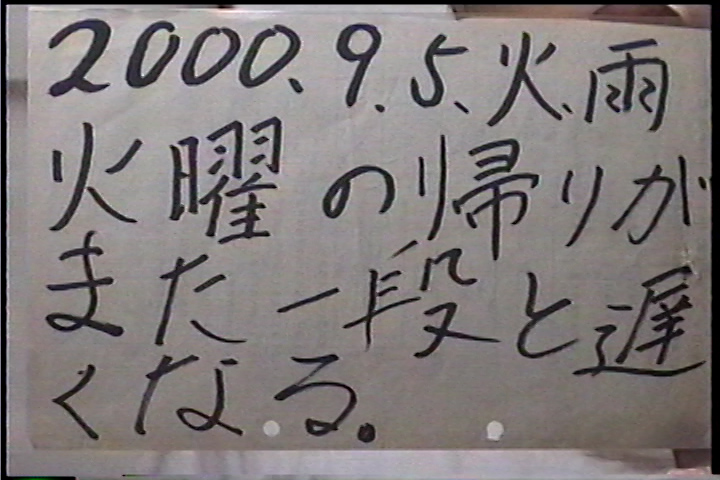 2000、9、5、火、雨
火曜の帰りが
また一段と遅
くなる。